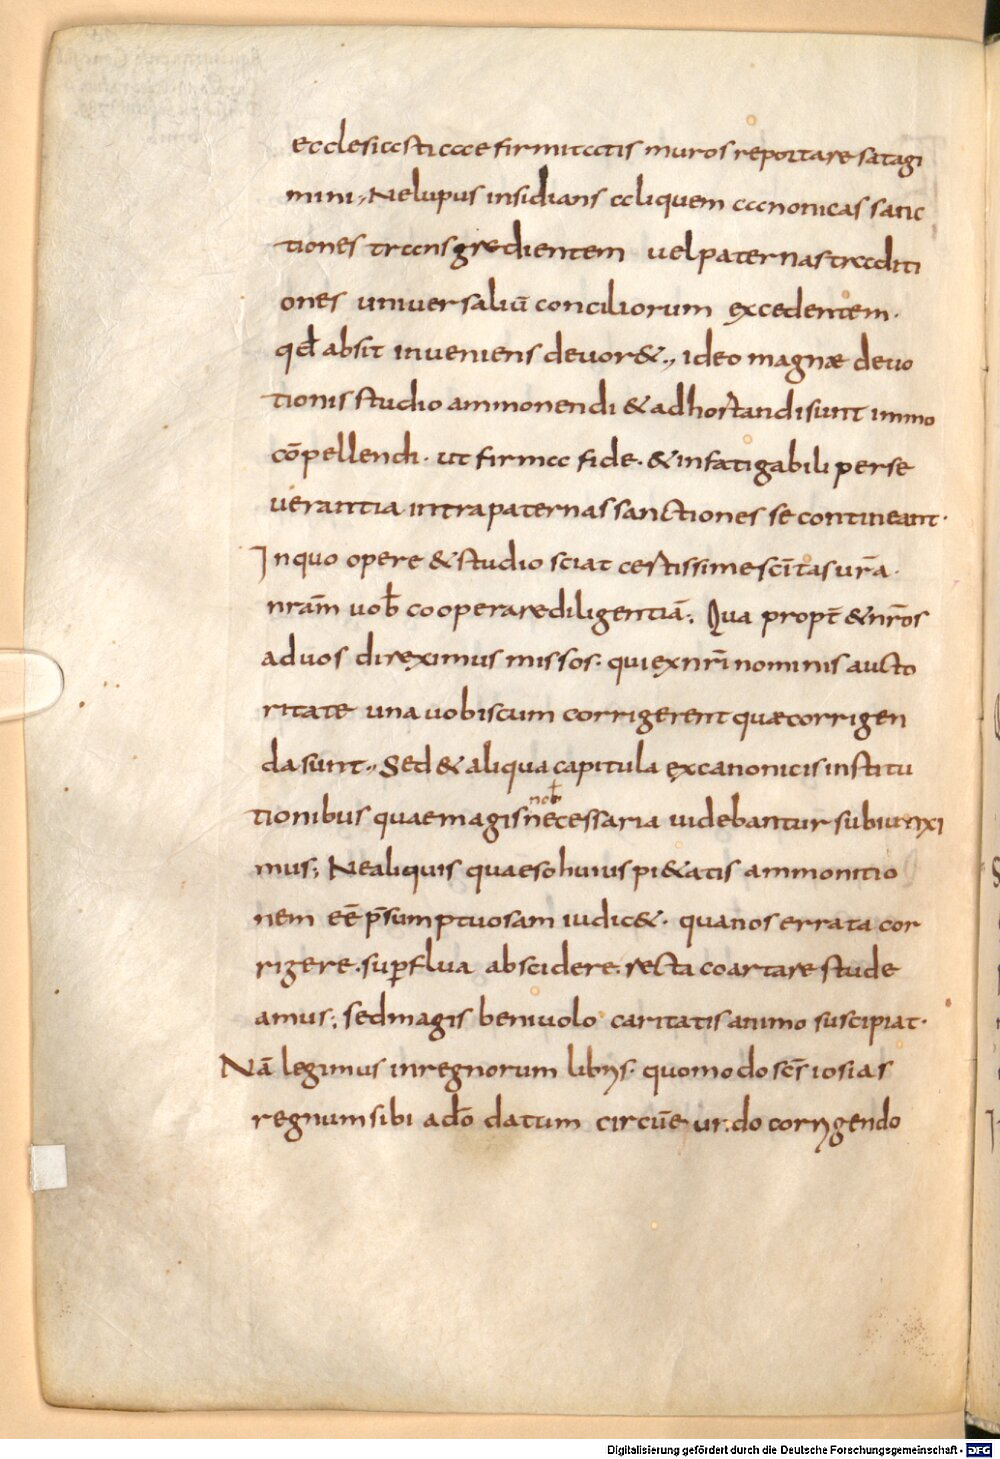 ecclesiasticae firmitatis muros reportare satagi
mini; Ne lupus insidians aliquem canonicas sanc
tiones transgredientem vel paternas traditi
ones universaliū conciliorum excedentem.
qđ absit inveniens devor&; ideo magnæ devo
tionis studio ammonendi & adhortandi sunt immo
cōpellendi. ut firma fide. & infatigabili perse
verantia intra paternas sanctiones se contineant.
In quo opere & studio sciat certissime sc̄itas vr̄a.
nr̄am vob̄ cooperare diligentiā; Qua propt̄ & nr̄os
ad vos direximus missos. qui ex nr̄i nominis aucto
ritate una vobiscum corrigerent quæ corrigen
da sunt; Sed & aliqua capitula ex canonicis institu
tionibus quae magis nob̄ necessaria videbantur subiunxi
mus; Ne aliquis quaeso huius pi&atis ammonitio
nem eē p̄sumptuosam iudic&. qua nos errata cor
rigere. sup̱flua abscidere. recta coartare stude
amus; sed magis benivolo caritatis animo suscipiat.
Nā legimus in regnorum librys. quomodo sc̄s iosias
regnum sibi a dō datum circūeundo corrigendo
Digitalisierung gefördert durch die Deutsche Forschungsgemeinschaft - DFG